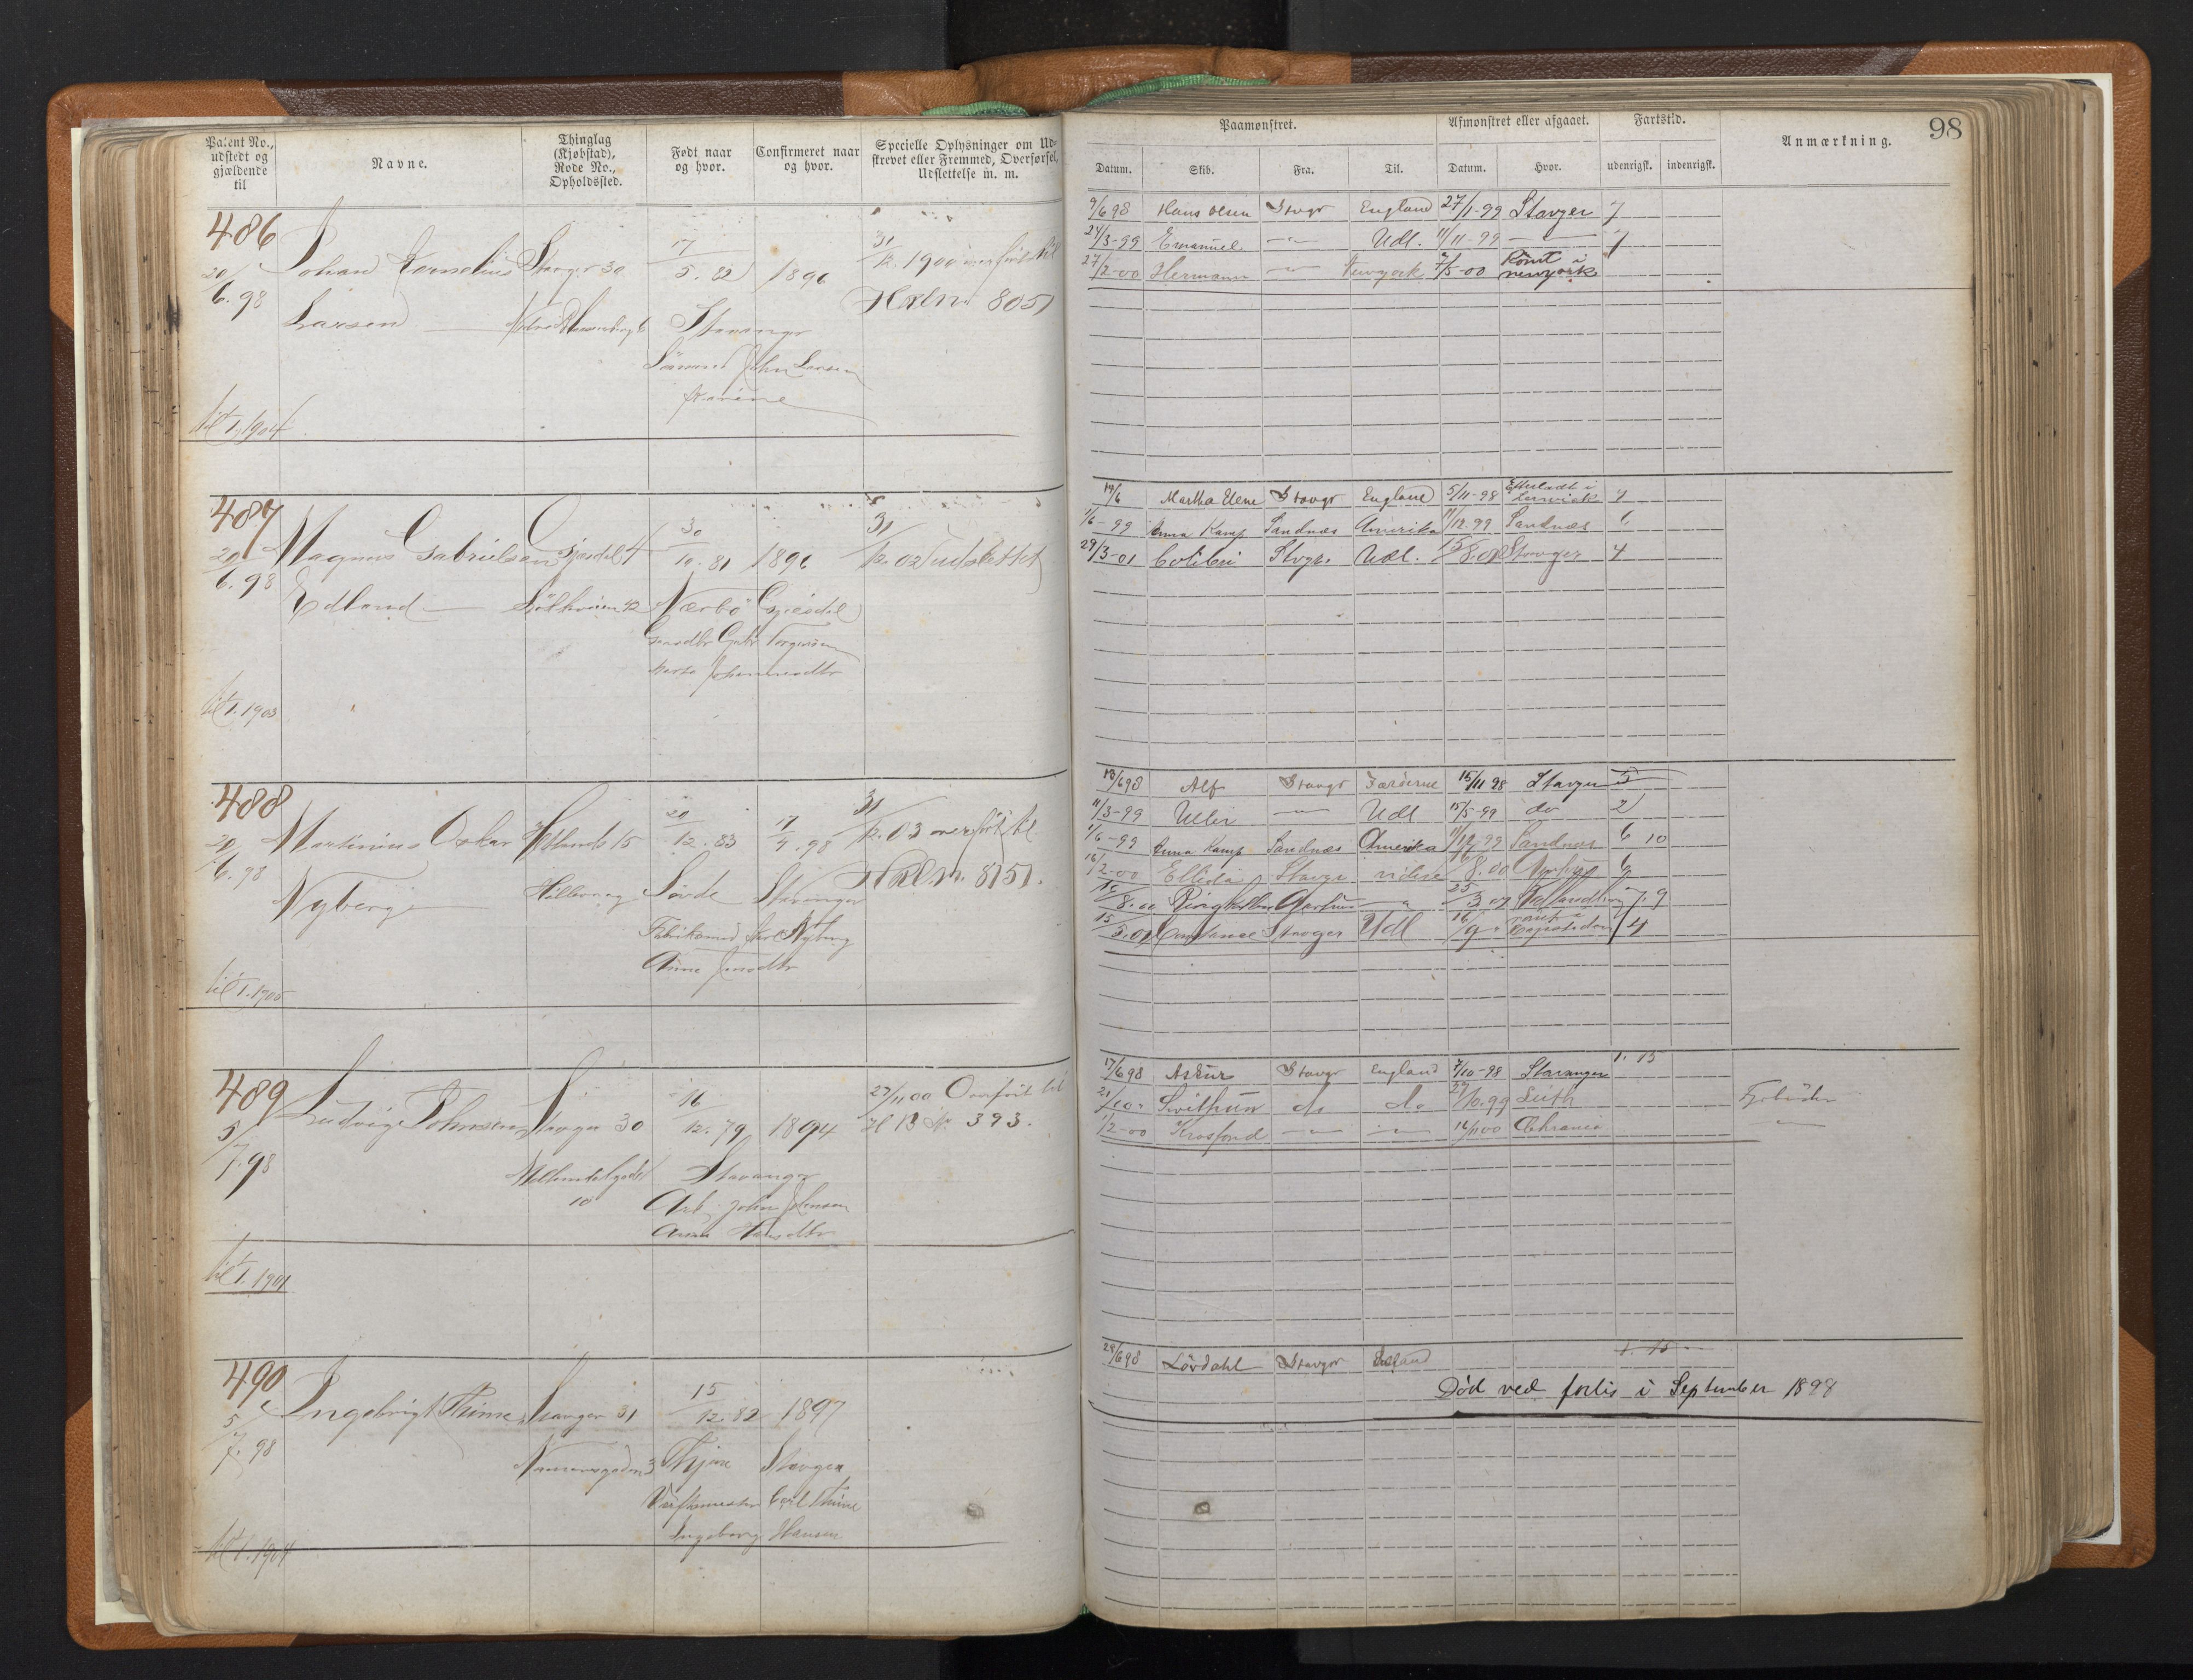 Patent No., udstedt og gjældende til
Navne.
Thinglag (Kjøbstad), Rode No., Opholdssted.
Født naar og hvor.
Confirmeret naar og hvor.
Specielle Oplysninger om Udskrevet eller Fremmed, Overførsel, Udslettelse m. m.
Paamønstret.
Afmønstret eller afgaaet.
Fartstid.
Anmærkning.
98
Datum. Skib. Fra. Til. Datum. Hvor. udenrigsk. indenrigsk.
486
20/6. 98
Johan Kornelius
Larsen
Stavger 30
17/5. 82
1896
31/12. 1900 overført til
Hxl no 8051
Stavanger
John Larsen
Karine
til 1/1 1904
9/6 98 Hans Olsen Stavgr England 27/1-99 Stavger 7
24/3-99 Emanuel -"- Udl. 11/11-99 -"- 7
27/2-00 Hermann -"- Newyork 7/5-00 Rømt i newyork
487
20/6. 98
Magnus Gabrielsen
Edland
Gjesdal 4
Sølhveien 42
30/10. 81
1896
31/12. 02 udslettet
Nærbø Gjesdal
Gaardbr Gabr Torgersen
Johannesdtr
til 1/1. 1903
14/6 Martha Elene Stavgr England 5/11-98 Efterladt i Lerwick 7
1/6-99 Anna Kamp Sandnæs Amerika 11/12. 99 Sandnæs 6
29/3-01 Colibri Stvgr. Udl. 15/8. 01 Stavger 4
488
20/6. 98
Martinius Oskar
Nyberg
Hetland 15
Hillevaag
20/12. 83
17/4. 98
31/12. 03 overført til
Hxl. n. 8151.
Stavanger
Nyberg
Anne
til 1/1. 1905
13/6 98 Alf Stavgr Færøerne 15/11 98 Stavger 5
11/3-99 Uller -"- Udl 15/5-99 do 2
1/6-99 Anna Kamp Sandnæs Amerika 11/12 99 Sandnæs 6 10
16/2-00 Ellida Stavgr videre 16/8. 00 Aarhus 6
Ringholm Aarhus -"- 25/3. 01 7. 9
15/5. 01 Constance Stavger Udl 16/9 4
489
5/7. 98
Ludvig Johnsen
Stavger 30
10
16/12. 79
1894
27/11 00 Overført til
H B No 393.
Stavanger
Arb. John Johnsen
Anna Hansdtr
til 1/1. 1901
17/6 98 Astur Stavgr England 7/10-98 Stavanger 1. 15
Swithun do do /10. 99 Leith
1/2-00 Krosfond -"- -"- 16/11 00
490
5/7. 98
Ingebrigt Thime
Stavger 31
Nansensgaden 3
15/12. 82
1897
Stavger
Carl Thime
Ingeborg Hansen
til 1/1. 1904
29/6 98 Lövdahl Stavgr
Död ved forlis i September 1898